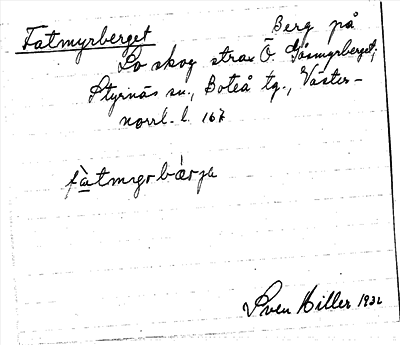 Fatmyrberget Berg på
Lo skog strax Ö. Gåsmyrberget,
Styrnäs sn., Boteå tg., Väster-
norrl. l. 167
fàtmyrbǽrja
Sven Hiller 1932